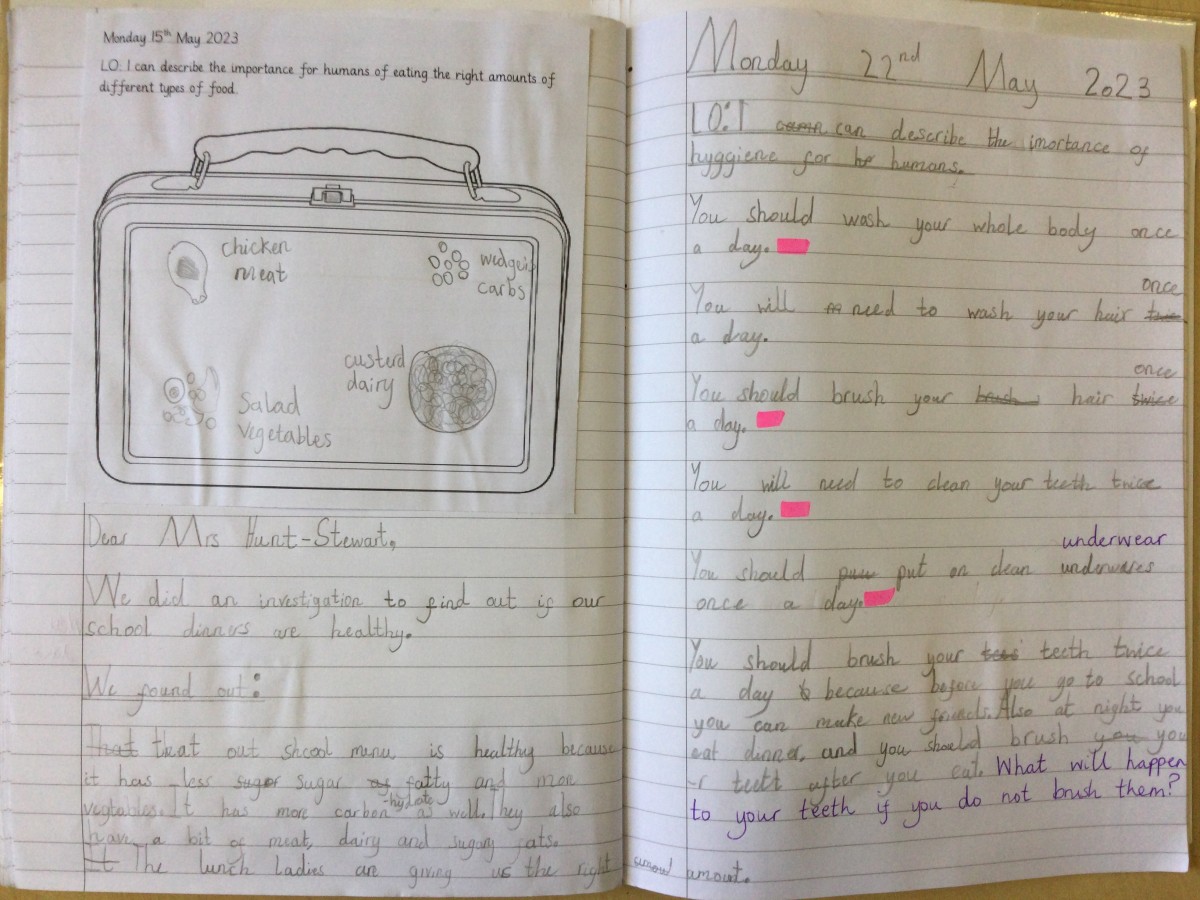 Monday 15th May 2023
LO: I can describe the importance for humans of eating the right amounts of
different types of food.
chicken
meat
wedgeis
carbs
custerd
dairy
Salad
vegetables
Dear Mrs Hunt-Stewart,
We did an investigation to find out if our
school dinners are healthy.
We found out:
That that out shcool menu is healthy because
it has less suger sugar fatty and mon
vegtables. It has more carbon-hydrate as well. They also
have a bit of meat, dairy and sugary fats.
It The lunch ladies are giving us the right amout amount.
Monday 22nd May 2023
LO: I can describe the imortance of
hyggiene for humans.
You should wash your whole body once
a day.
once
You will need to wash your hair
a day.
once
You should brush your brush hair twice
a day.
You will need to clean your teeth twice
a day.
underwear
You should put on clean underwares
once a day.
You should brush your teeth twice
a day because before you go to school
you can make new friends. Also at night you
eat dinner, and you should brush you you
-r teeth after you eat. What will happen
to your teeth if you do not brush them?